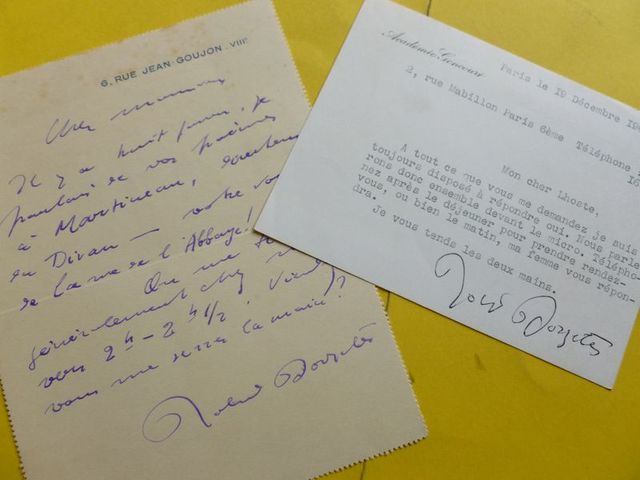 6, RUE JEAN-GOUJON. VIIIᵉ
Cher monsieur
Il y a huit jours, je
parlais de vos poèmes
à Martineau,
du Divan — votre
de la rue de l'Abbaye!
On me
généralement chez
vers 2h - 2h 1/2.
vous me serrer la main?
Roland Dorgelès
Académie Goncourt
Paris le 19 Décembre 19
2, rue Mabillon Paris 6ème Téléphone
Mon cher Lhoste,
A tout ce que vous me demandez je suis
toujours disposé à répondre oui. Nous parle-
rons donc ensemble devant le micro. Télépho-
nez après le déjeuner pour prendre rendez-
vous, ou bien le matin, ma femme vous répon-
dra.
Je vous tends les deux mains.
Roland Dorgelès